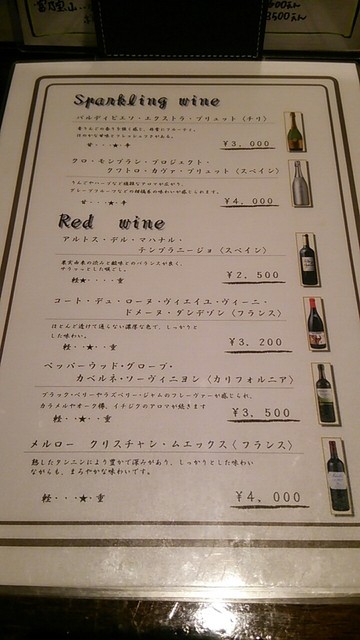 Sparkling wine
バルディビエソ・エクストラ・ブリュット〈チリ〉
甘・・・★・辛
¥3,000
クロ・モンブラン・プロジェクト・
クワトロ・カヴァ・ブリュット〈スペイン〉
甘・・・★・辛
¥4,000
Red wine
アルトス・デル・マハナル・
テンプラニージョ〈スペイン〉
果実由来の渋みと酸味とのバランスが良く、
サラッとした味ごし。
軽★・・・・重
¥2,500
コート・デュ・ローヌ・ヴィエイユ・ヴィーニ・
ドメーヌ・ダンデゾン〈フランス〉
ほとんど透けて通らない濃厚な色で、しっかりと
した味わい。
軽・・★・・重
¥3,200
ペッパーウッド・グローブ・
カベルネ・ソーヴィニヨン〈カリフォルニア〉
ブラック・ベリーやラズベリー・ジャムのフレーヴァーが感じられ、
カラメルやオーク樽、イチジクのアロマが続きます
軽・・★・・重
¥3,500
メルロー クリスチャン・ムエックス〈フランス〉
熟したタンニンにより豊かで深みがあり、しっかりとした味わい
ながらも、まろやかな味わいです。
軽・・・★・重
¥4,000